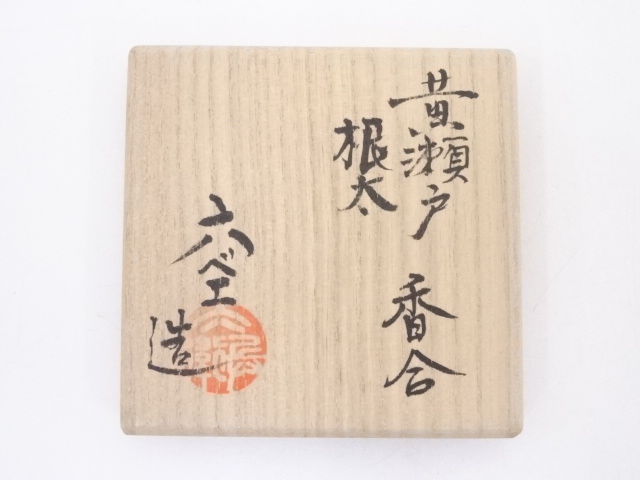 黄瀬戸
根太
香合
六ベエ
造